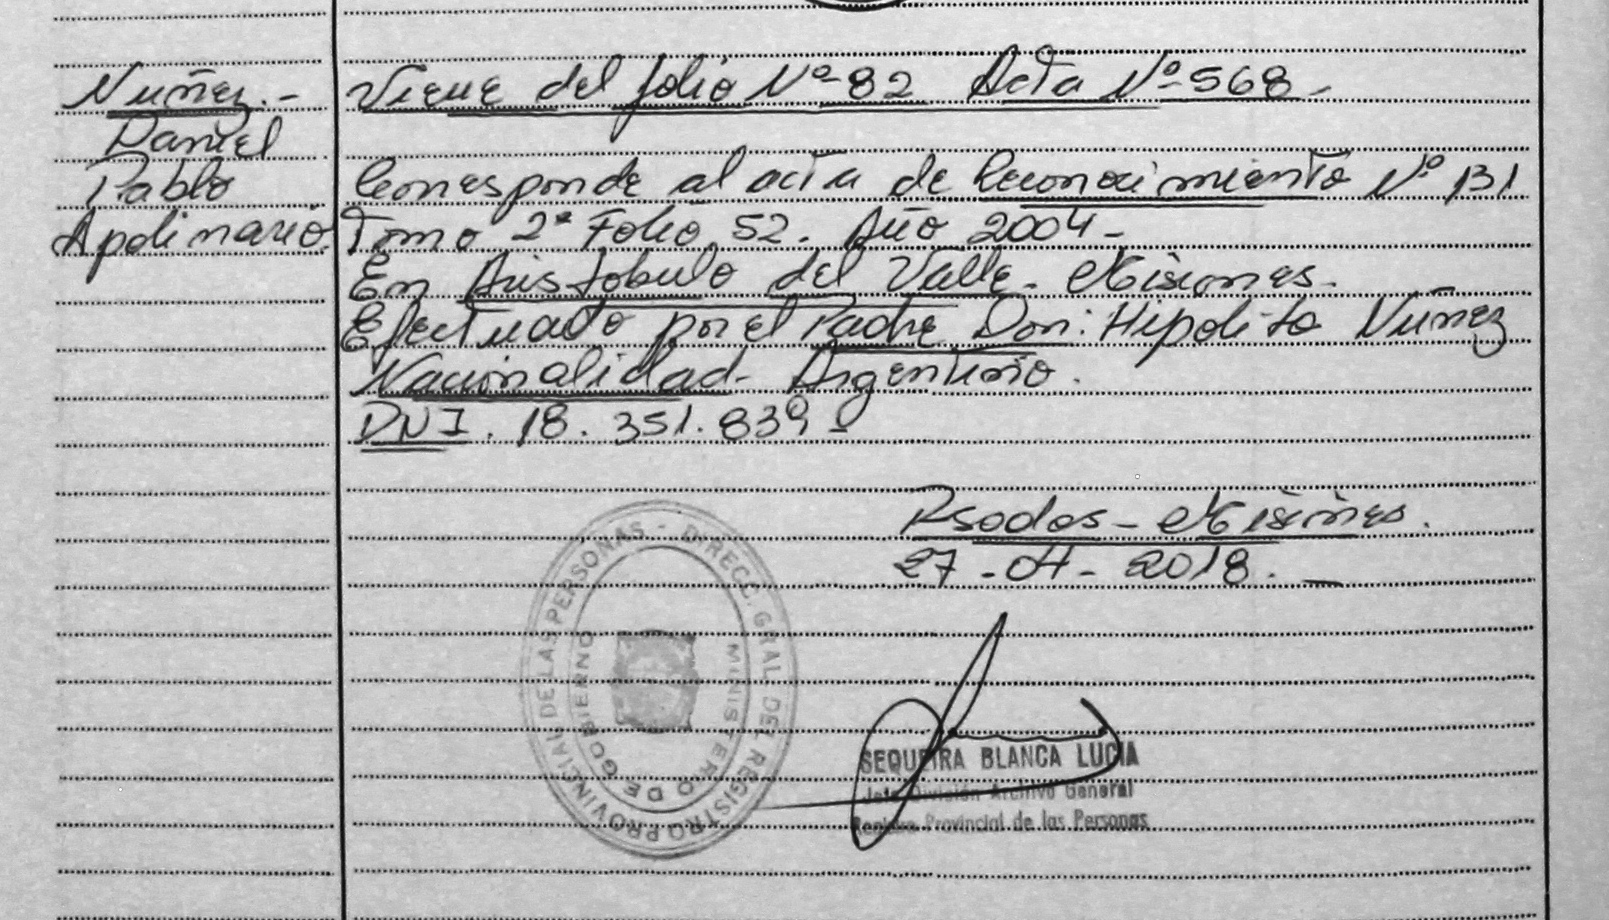 Nuñez.-
Daniel
Pablo
Apolinario.
Viene del folio Nº 82 Acta Nº 568-
Corresponde al acta de Reconocimiento Nº 131
Tomo 2º Folio 52. Año 2004-
En Aristobulo del Valle- Misiones.
Efectuado por el Padre Don: Hipolito Nuñez
Nacionalidad- Argentino.
DNI. 18.351.839-
Psadas- Misiones.
27-04-2018.-
DIRECC. GRAL DEL REGISTRO PROVINCIAL DE LAS PERSONAS -
MINISTERIO DE GOBIERNO
SEQUEIRA BLANCA LUCIA
Jefe División Archivo General
Registro Provincial de las Personas